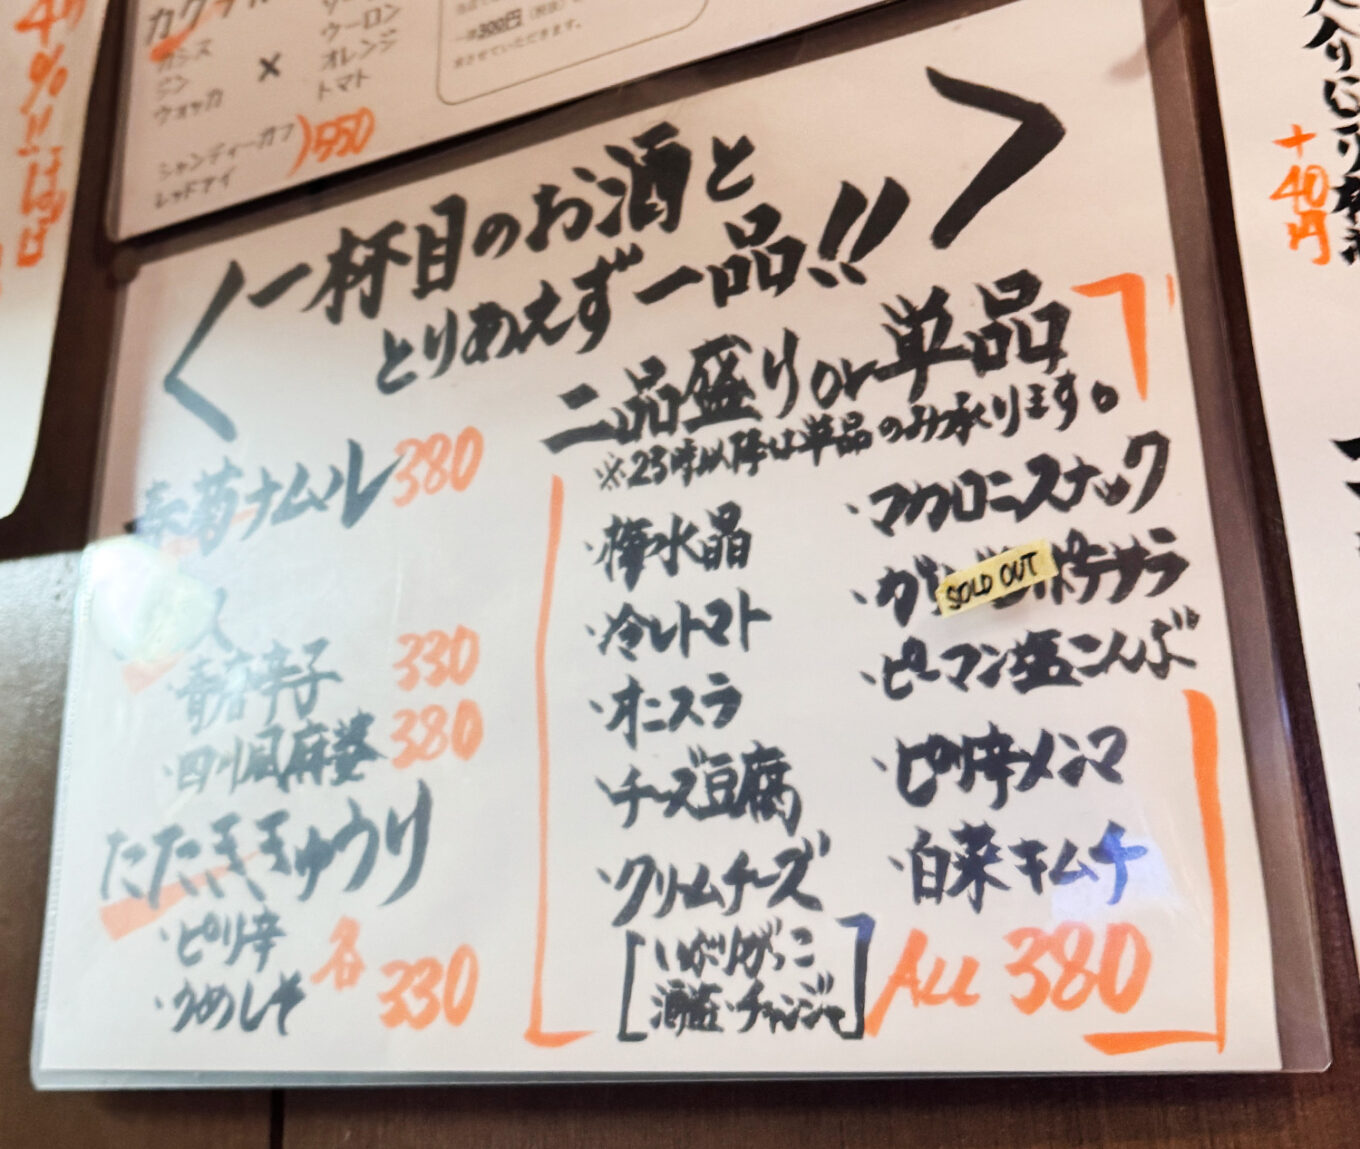 カシス
ジン
ウォッカ
×
ウーロン
オレンジ
トマト
シャンディーガフ
レッドアイ
)550
一律300円(税抜)
させていただきます。
+40円
一杯目のお酒と
とりあえず一品!!
二品盛りor単品
※23時以降は単品のみ承ります。
春菊ナムル380
青唐辛子 330
・四川風麻婆380
たたききゅうり
・ピリ辛
・うめしそ
各330
・梅水晶
・冷しトマト
・オニスラ
・チーズ豆腐
・クリームチーズ
[いぶりがっこ
酒盗・チャンジャ]
・マカロニスナック
・ガリ
SOLD OUT
ポテサラ
・ピーマン塩こんぶ
・ピリ辛メンマ
・白菜キムチ
ALL 380